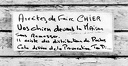 Arrêtez de Faire CHIER
Vos chien devant la Maison
Sans Ramasser
Il existe des distributeur de Poches
Cela devient de la Provocation